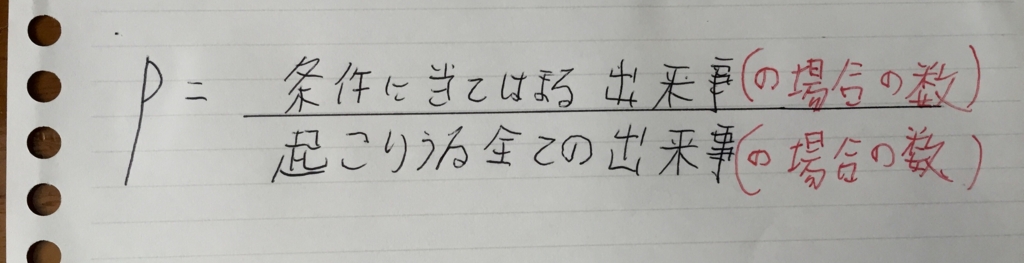 P = 条件に当てはまる出来事(の場合の数)
起こりうる全ての出来事(の場合の数)